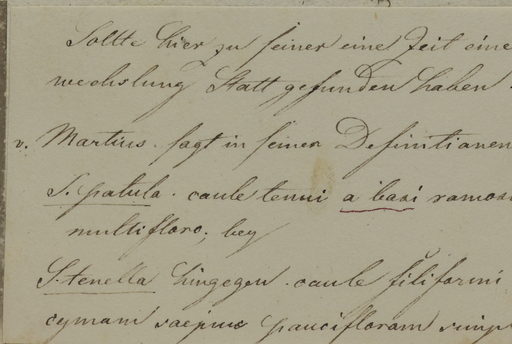 Sollte hier zu seiner eine Zeit eine
wechslung Statt gefunden haben
v. Martius. sagt in seinen Definitionen
S. patula. caule tenui a basi ramos
multifloro; bey
S. tenella hingegen. caule filiformi
cymam saepius paucifloram simp